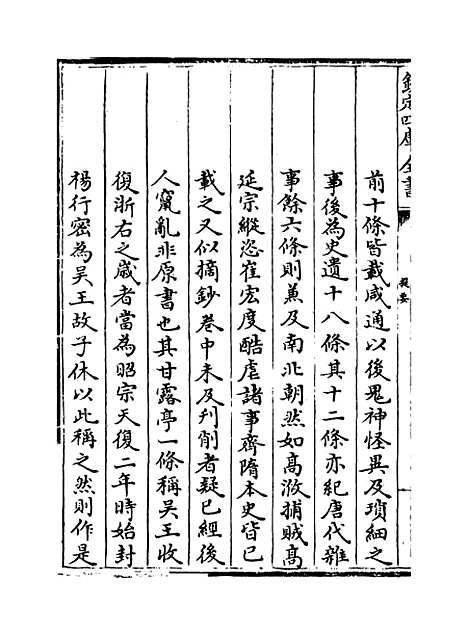 欽定四庫全書
提要
前十條皆載咸通以後鬼神怪異及瑣細之
事後為史遺十八條其十二條亦紀唐代雜
事餘六條則兼及南北朝然如高澂捕賊高
延宗縱恣崔宏度酷虐諸事齊隋本史皆已
載之又似摘鈔卷中未及刋削者疑已經後
人竄亂非原書也其甘露亭一條稱吳王收
復浙右之歲者當為昭宗天復二年時始封
楊行密為吳王故子休以此稱之然則作是